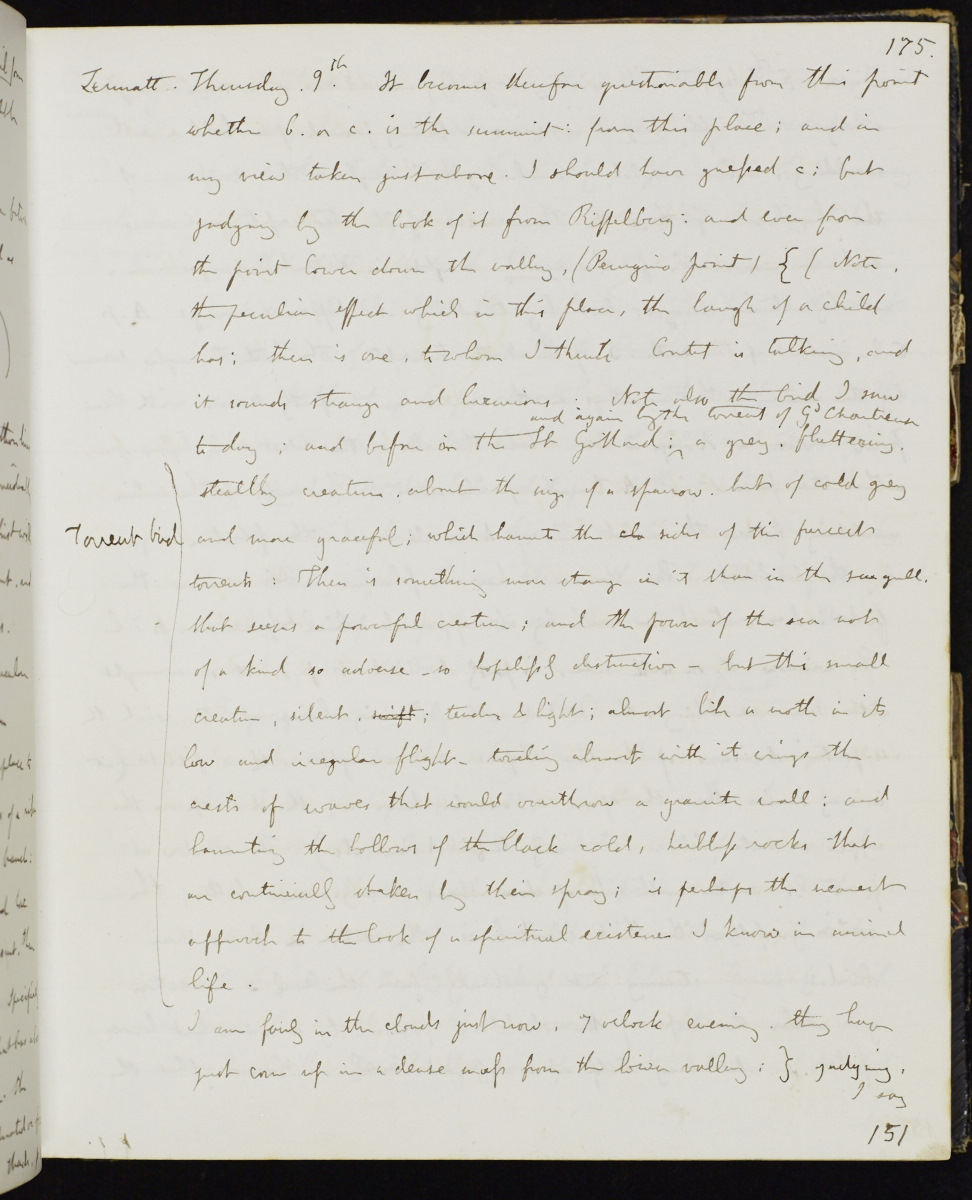 175.
Zermatt. Thursday. 9th. It becomes therefore questionable from this point
whether b. or c. is the summit: from this place; and in
my view taken just above. I should have guessed c; but
judging by the look of it from Riffelberg: and even from
the point lower down the valley, (Perugino point) { ( Note,
the peculiar effect which in this place, the laugh of a child
has; there is one, to whom I think Coutet is talking, and
it sounds strange and luxurious. Note also the bird I saw
and again by the torrent of Gd Chartreuse
to day; and before in the St Gothard; a grey. fluttering.
stealthy creature. about the size of a sparrow. but of cold grey
Torrent bird
and more graceful; which haunts the cla sides of the fiercest
torrents: There is something more strange in it than in the seagull.
that seems a powerful creature; and the power of the sea not
of a kind so adverse - so hopelessly destructive - but this small
creature, silent, swift; tender & light; almost like a moth in its
low and irregular flight - touching almost with its wings the
crests of waves that would overthrow a granite wall; and
haunting the hollows of the black cold, herbless rocks that
are continually shaken by their spray; is perhaps the nearest
approach to the look of a spiritual existence I know in animal
life.
I am fairly in the clouds just now, 7 oclock evening. they have
just come up in a dense mass from the lower valley: } judging,
I say
151